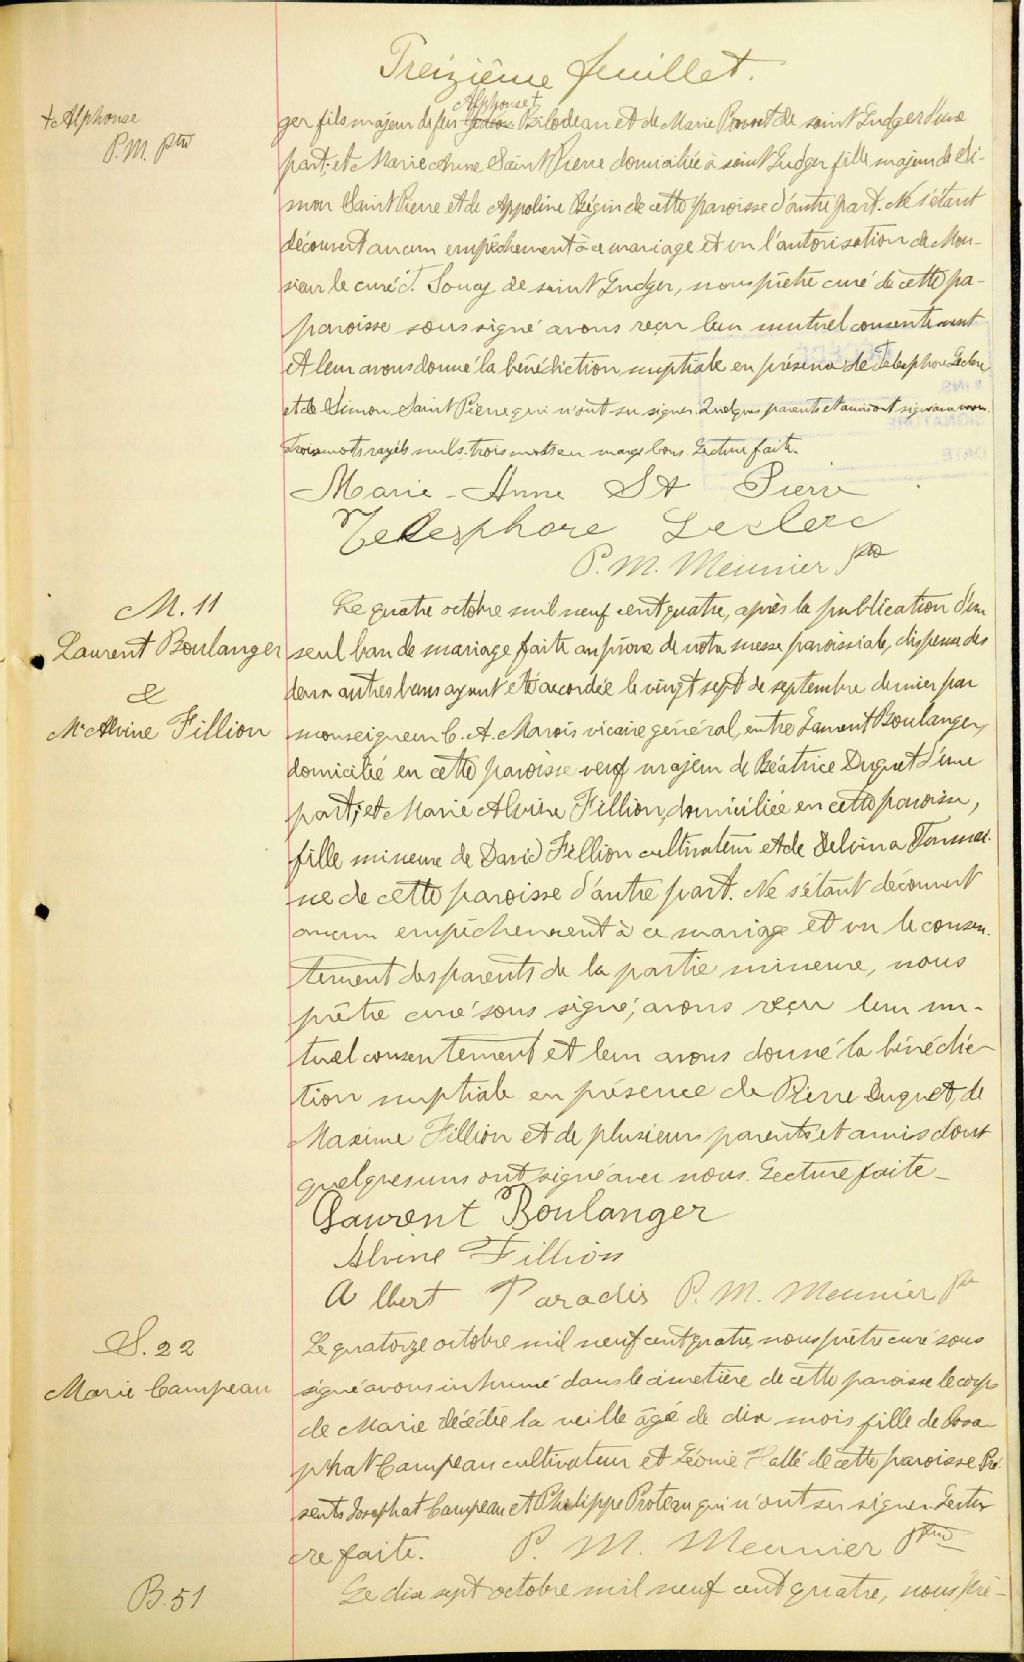 Treizième feuillet.
+ Alphonse
P. M. Ptre
Alphonse +
ger fils majeur de feu Bilodeau et de Marie de saint Ludger d'une
part; et Marie Anne Saint Pierre domiciliée à saint Ludger fille majeure de Si-
mon Saint Pierre et de Appoline Bégin de cette paroisse d'autre part. Ne s'étant
découvert aucun empêchement à ce mariage et vu l'autorisation de Mon-
sieur le curé de saint Ludger, nous prêtre curé de cette pa-
paroisse soussigné avons reçu leur mutuel consentement
et leur avons donné la bénédiction nuptiale en présence de Telesphore Leclerc
et de Simon Saint Pierre qui n'ont su signer. Quelques parents et amis ont signé avec nous.
Trois mots rayés nuls. trois mots en marge bons. Lecture faite.
Marie-Anne St Pierre
Telesphore Leclerc
P. M. Meunier Ptre
M. 11
Laurent Boulanger
&
M. Alvine Fillion
Le quatre octobre mil neuf cent quatre, après la publication d'un
seul ban de mariage faite au prône de notre messe paroissiale, dispense des
deux autres bans ayant été accordée le vingt sept de septembre dernier par
monseigneur C. A. Marois vicaire général, entre Laurent Boulanger,
domicilié en cette paroisse veuf majeur de Béatrice Duquet d'une
part; et Marie Alvine Fillion, domiciliée en cette paroisse,
fille mineure de David Fillion cultivateur et de Delvina
ne de cette paroisse d'autre part. Ne s'étant découvert
aucun empêchement à ce mariage et vu le consen-
tement des parents de la partie mineure, nous
prêtre curé sous signé, avons reçu leur mu-
tuel consentement et leur avons donné la bénédic-
tion nuptiale en présence de Pierre Duquet, de
Maxime Fillion et de plusieurs parents et amis dont
quelques uns ont signé avec nous. Lecture faite -
Laurent Boulanger
Alvine Fillion
Albert Paradis P. M. Meunier Ptre
S. 22
Marie Campeau
Le quatorze octobre mil neuf cent quatre, nous prêtre curé sous
signé avons inhumé dans le cimetière de cette paroisse le corps
de Marie décédée la veille âgé de dix mois fille de Josa-
phat Campeau cultivateur et Léonie Hallé de cette paroisse Pré
sents Josaphat Campeau et Philippe Proteau qui n'ont su signer. Lectu
re faite. P. M. Meunier Ptre
B. 51
Le dix sept octobre mil neuf cent quatre, nous prê-